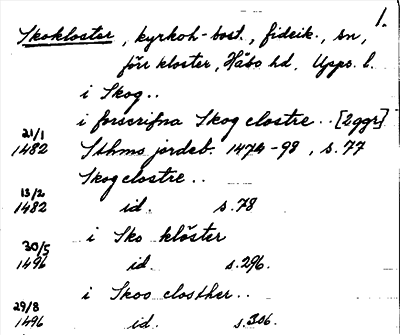 1.
Skokloster, kyrkoh-bost., fideik., sn,
förr kloster, Håbo hd, Upps. l.
i Skog..
i forscrifna Skog clostre.. [2ggr]
21/1 1482 Sthms jordeb. 1474-98, s.77
Skog clostre..
13/2 1482 id. s.78
i Sko klöster
30/5 1496 id. s.296.
i Skoo closther..
29/8 1496 id. s.306.